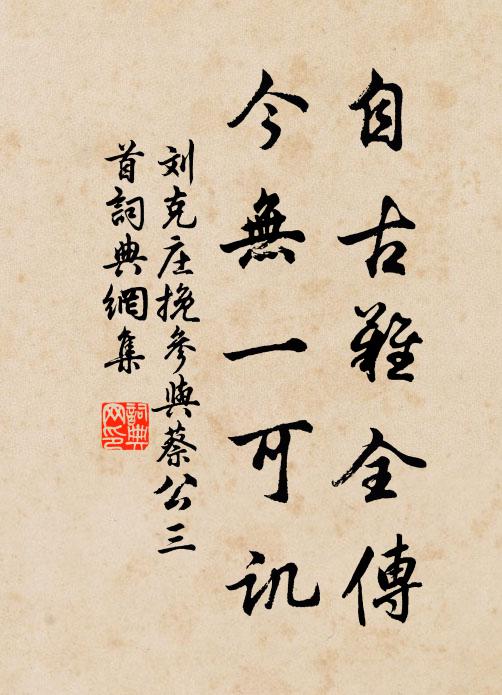 自古難全傳
今無一可譏
刘克庄挽參與蔡公三
首詞典網集
詞典
网印